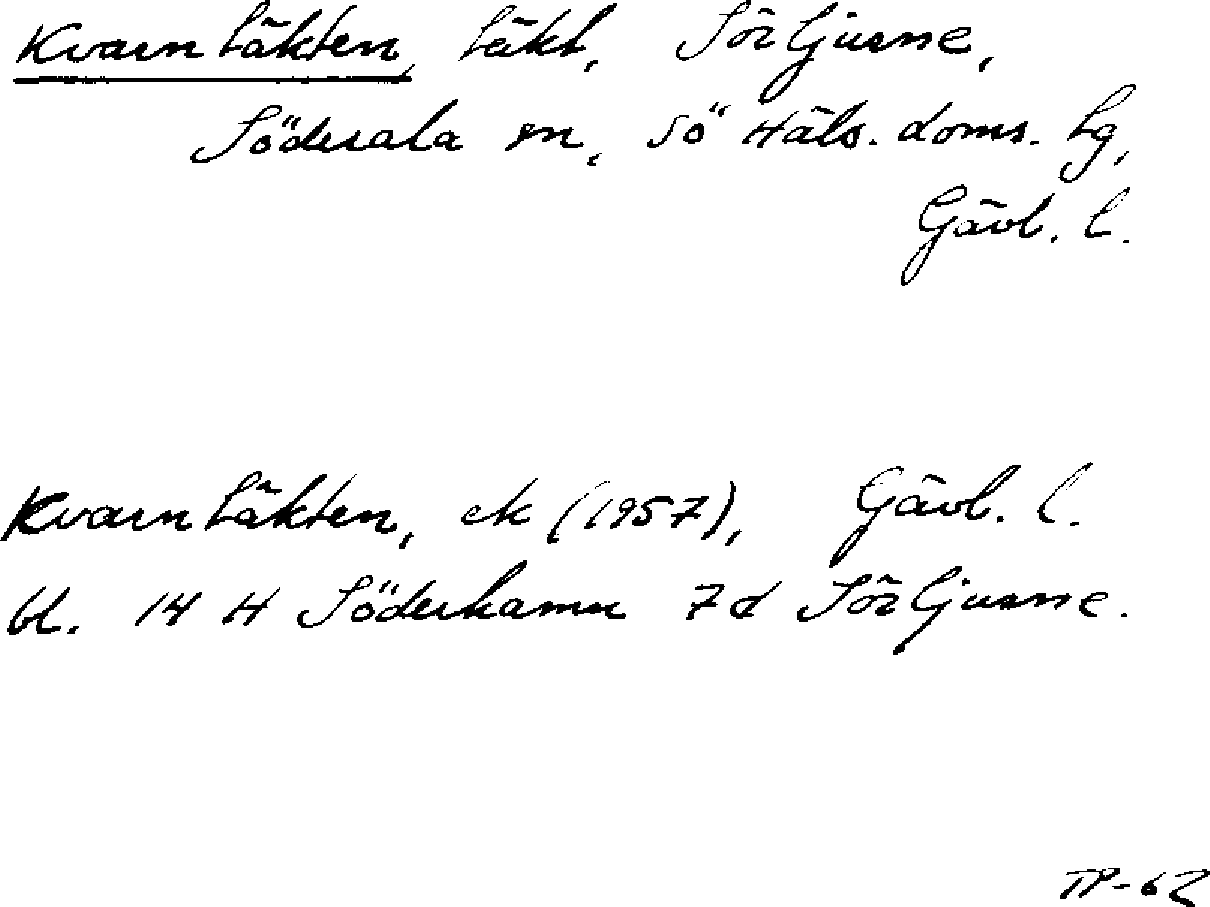 Kvarntäkten, täkt, Sör Ljusne,
Söderala sn, sö Häls. doms. tg,
Gävl. l.
Kvarntäkten, ek (1957), Gävl. l.
bl. 14 H Söderhamn 7d Sör Ljusne.
TP-62